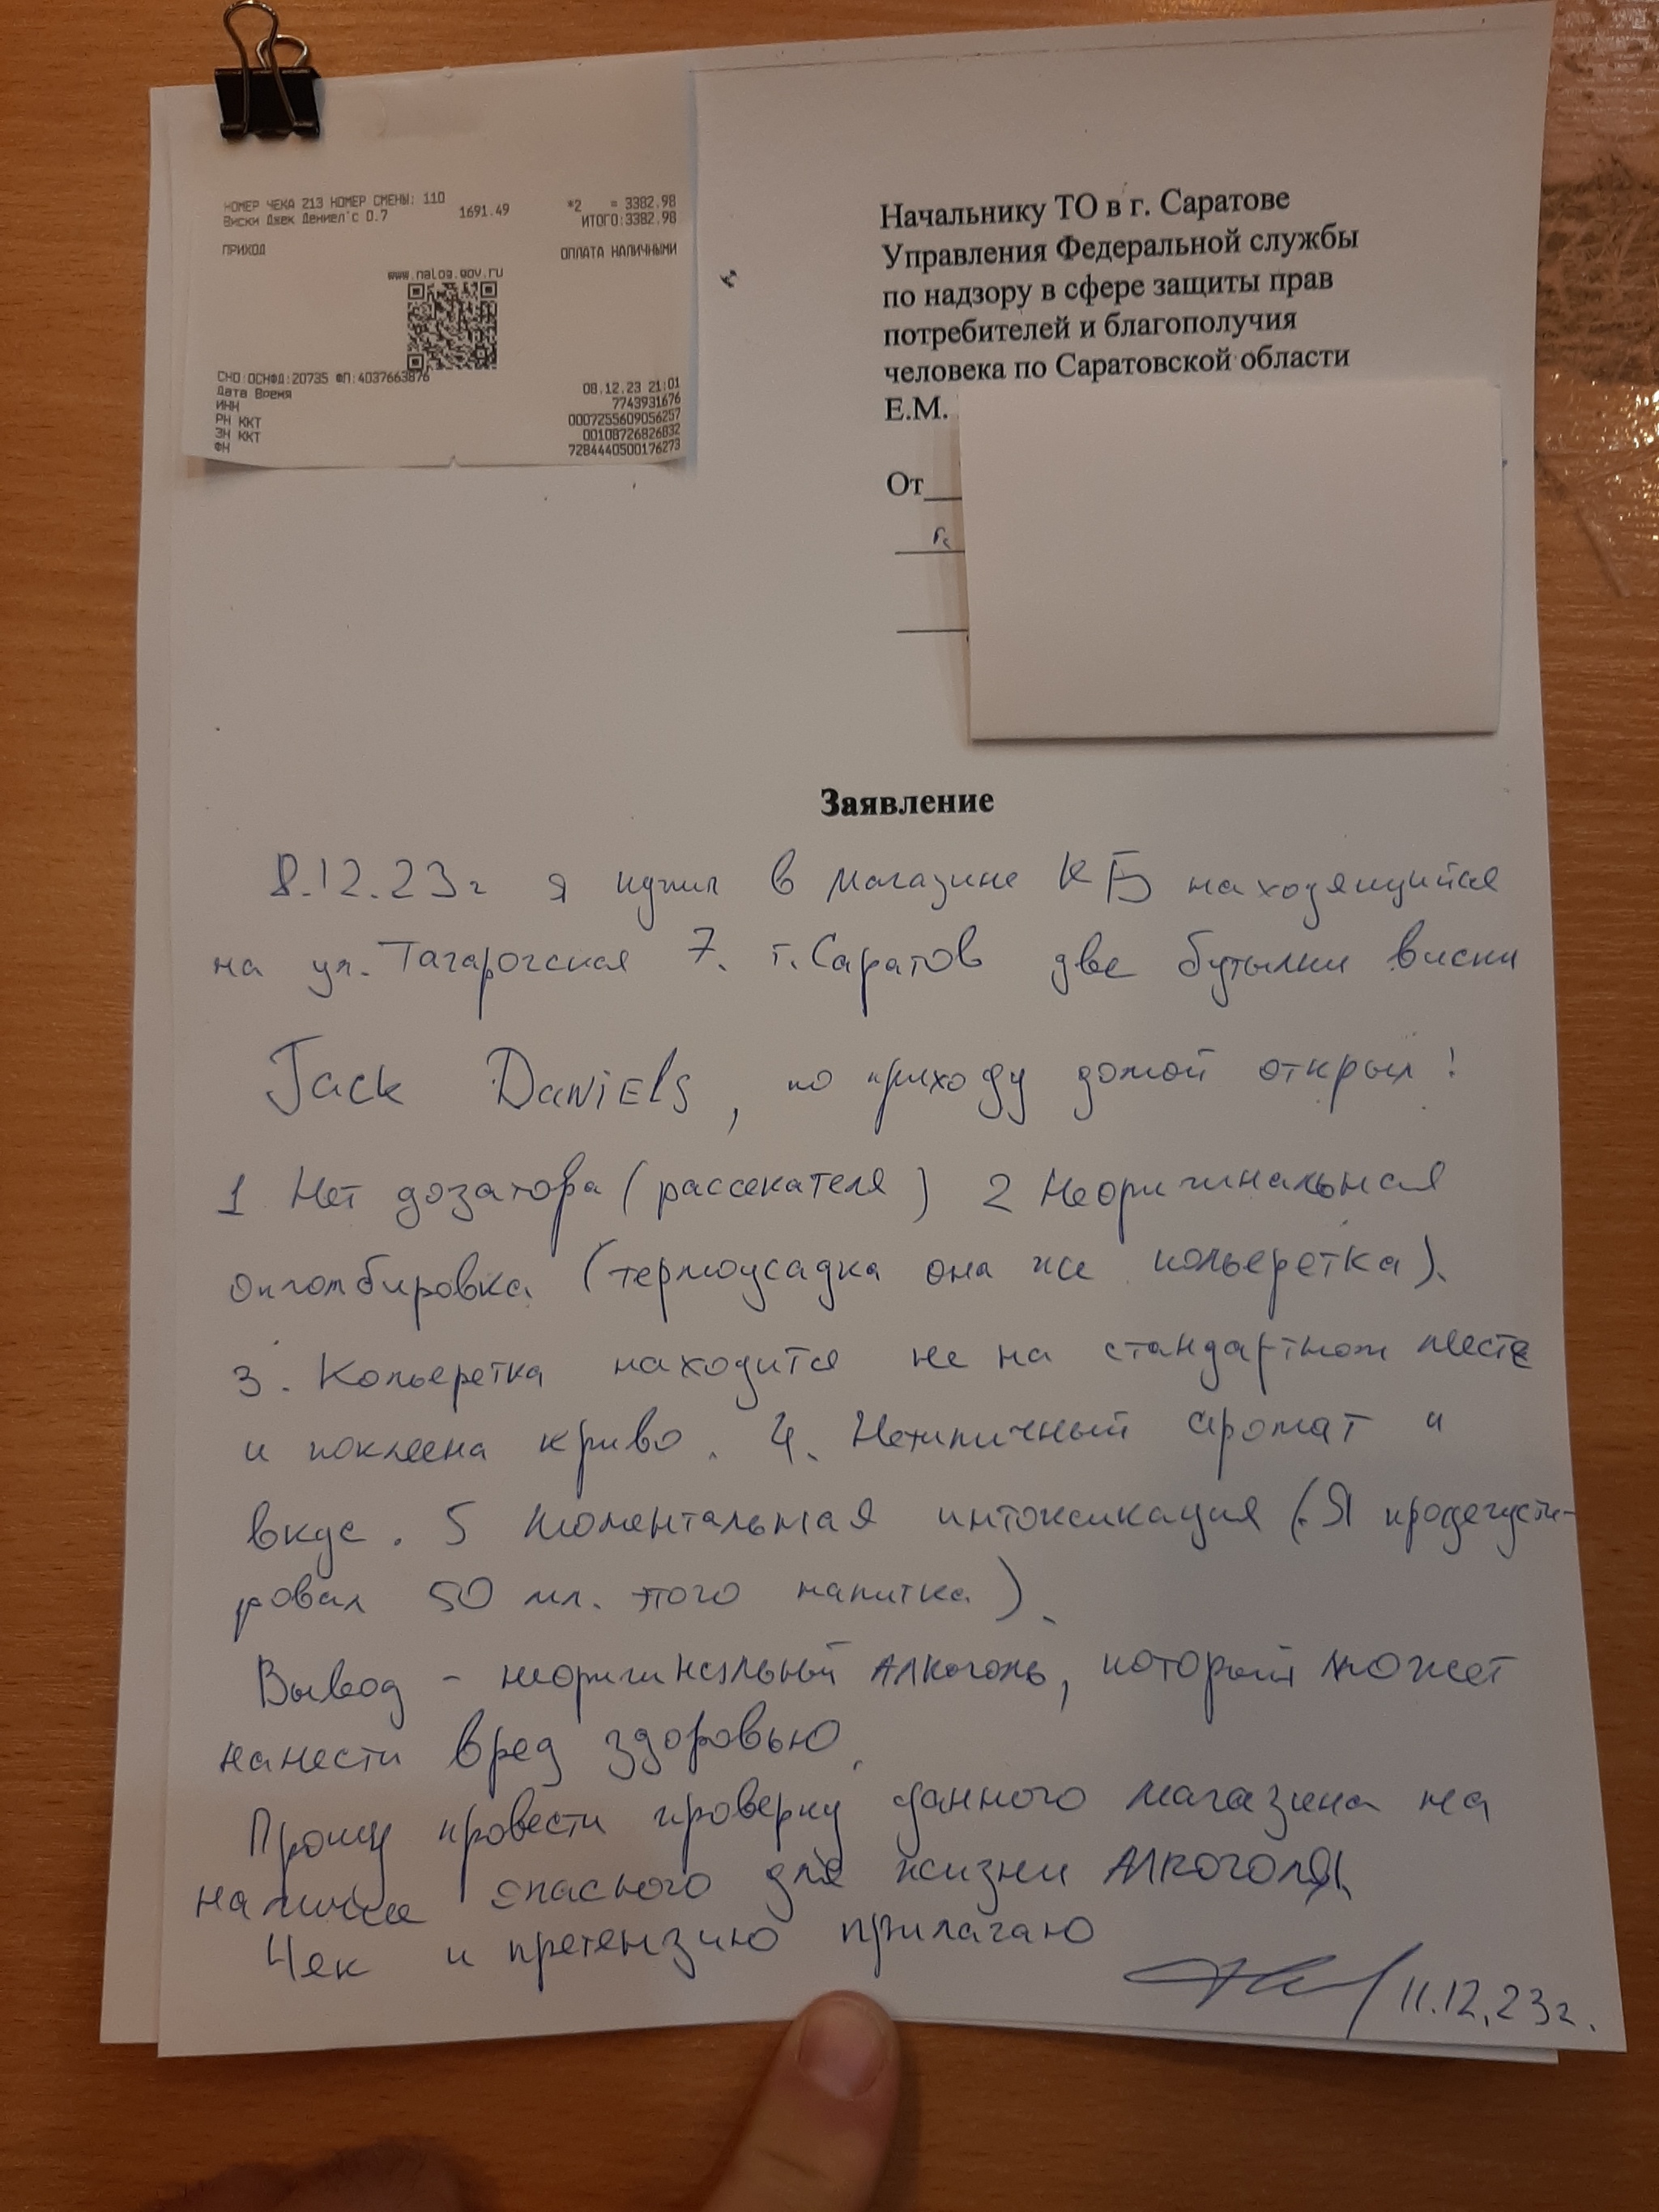 НОМЕР ЧЕКА 213 НОМЕР СМЕНЫ: 110
Виски Джек Дениел'с 0.7 1691.49 *2 = 3382.98
ИТОГО:3382.98
ПРИХОД ОПЛАТА НАЛИЧНЫМИ
www.nalog.gov.ru
СНО:ОСН ФД:20735 ФП:4037663876
Дата Время 08.12.23 21:01
ИНН 7743931676
РН ККТ 0007255609056257
ЗН ККТ 00108726826832
ФН 7284440500176273
Начальнику ТО в г. Саратове
Управления Федеральной службы
по надзору в сфере защиты прав
потребителей и благополучия
человека по Саратовской области
Е.М.
От
Заявление
8.12.23г я купил в магазине КБ находящийся
на ул. Тагарогская 7. г. Саратов две бутылки виски
Jack Daniels, по приходу домой открыл!
1 Нет дозатора (рассекателя) 2 Неоригинальная
опломбировка (термоусадка она же кольеретка).
3. Кольеретка находится не на стандартном месте
и поклеена криво. 4. Нетипичный аромат и
вкус. 5 моментальная интоксикация (Я продегусти-
ровал 50 мл. этого напитка).
Вывод - неоригинальный алкоголь, который может
нанести вред здоровью.
Прошу провести проверку данного магазина на
наличие опасного для жизни алкоголя
Чек и претензию прилагаю
11.12.23г.